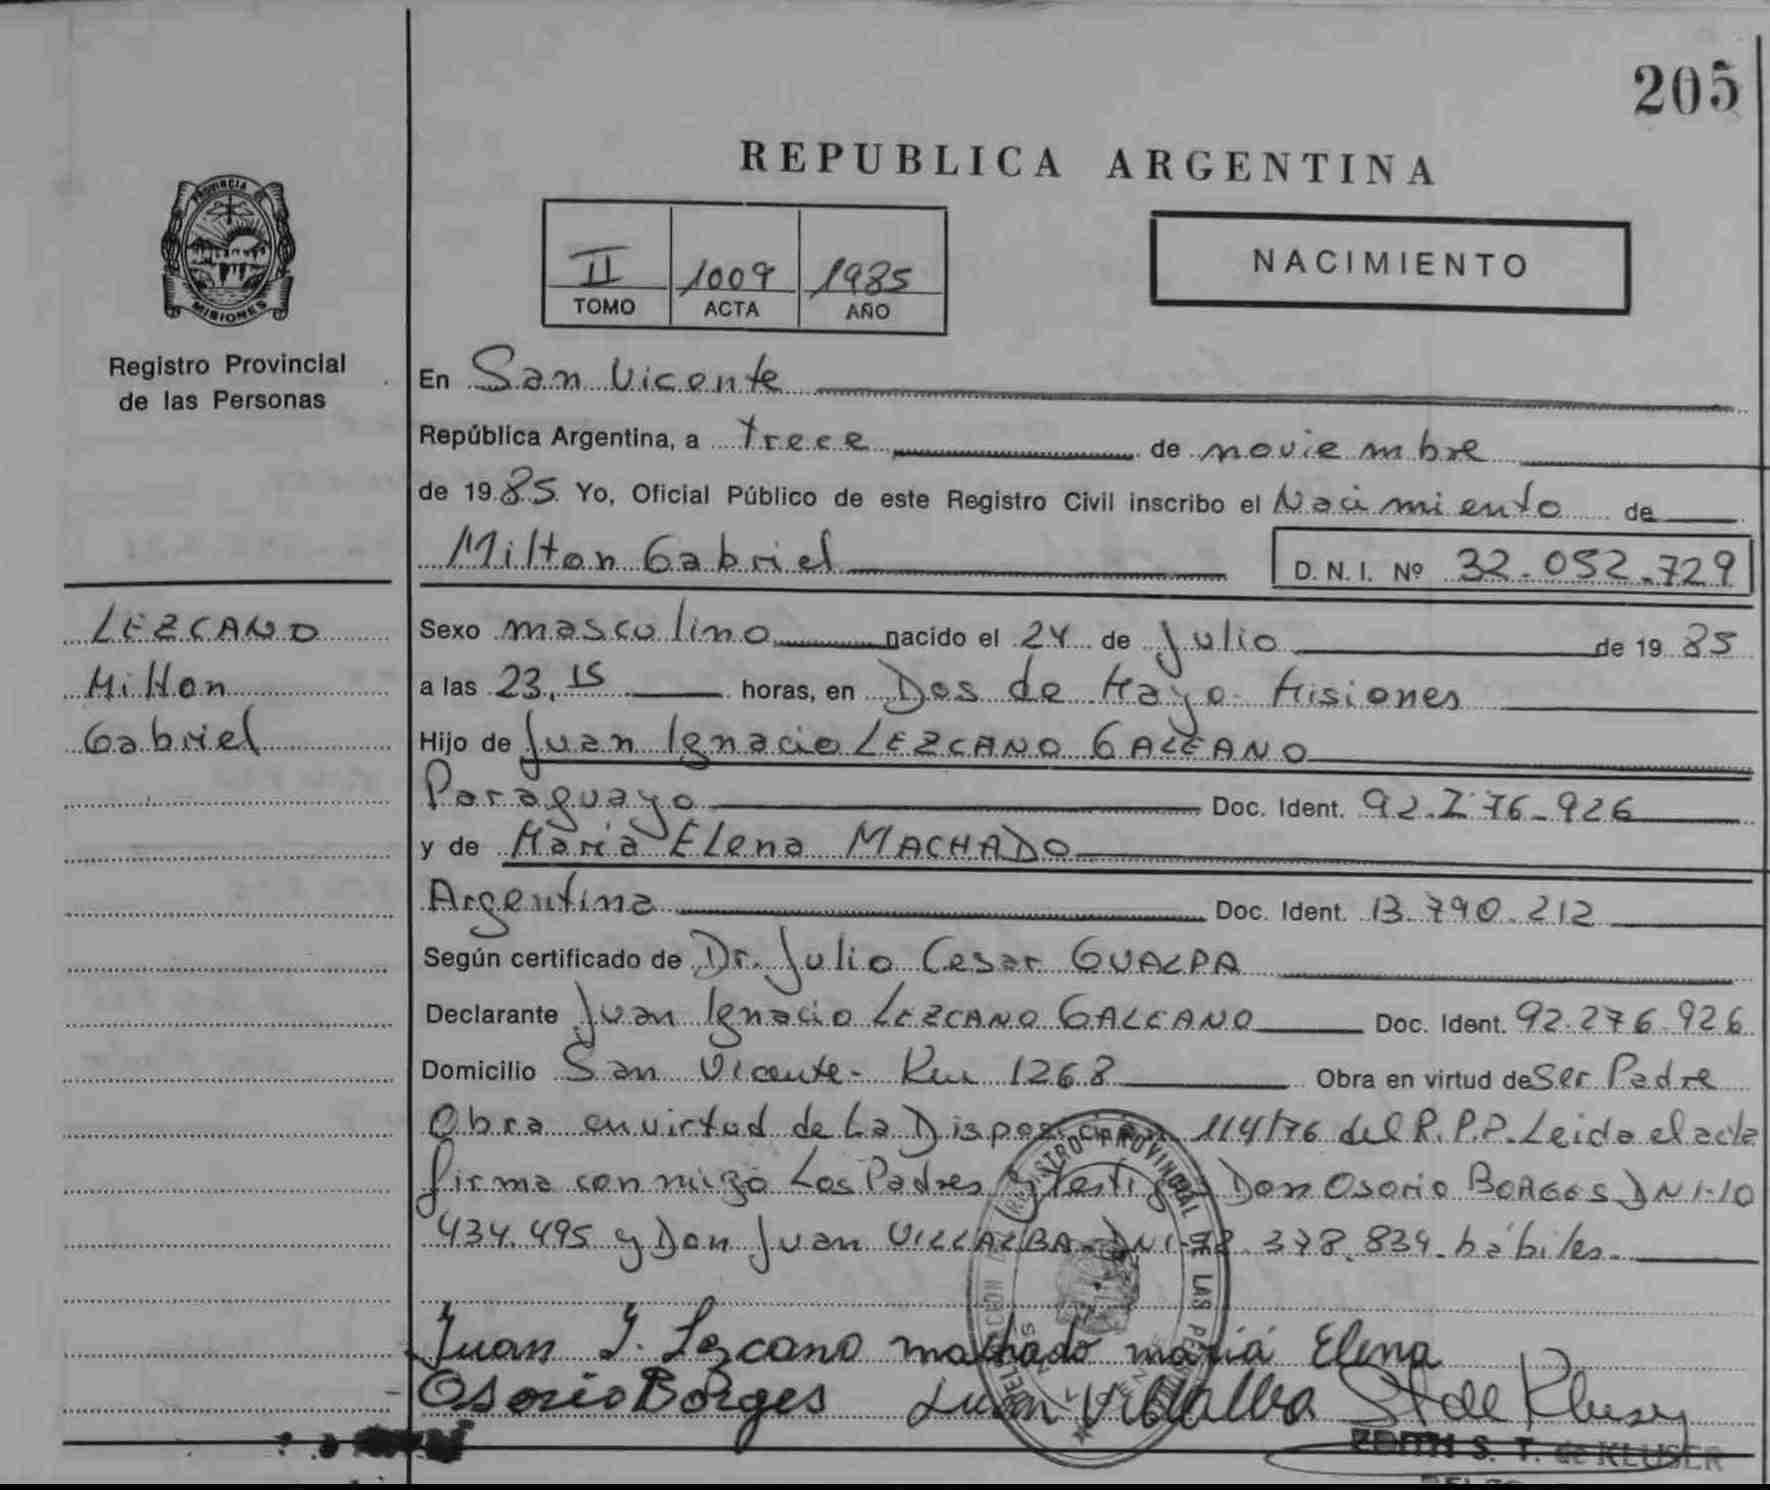 205
REPUBLICA ARGENTINA
PROVINCIA DE
MISIONES
Registro Provincial
de las Personas
II 1009 1985
TOMO ACTA AÑO
NACIMIENTO
En San Vicente
República Argentina, a trece de noviembre
de 1985 Yo, Oficial Público de este Registro Civil inscribo el Nacimiento de
Milton Gabriel D.N.I. Nº 32.052.729
LEZCANO
Milton
Gabriel
Sexo masculino nacido el 24 de Julio de 1985
a las 23,15 horas, en Dos de Mayo - Misiones
Hijo de Juan Ignacio LEZCANO GALEANO
Paraguayo Doc. Ident. 92.276.926
y de Maria Elena MACHADO
Argentina Doc. Ident. 13.790.212
Según certificado de Dr. Julio Cesar GUALPA
Declarante Juan Ignacio LEZCANO GALEANO Doc. Ident. 92.276.926
Domicilio San Vicente - Km 1268 Obra en virtud de Ser Padre
Obra en virtud de La Disposición 114/76 del R.P.P. Leida el acta
firma conmigo Los Padres y testigos Don Osorio BORGES DNI-10
434.495 y Don Juan VILLALBA DNI- .378.839. hábiles.
Juan I. Lezcano machado maría Elena
Osorio Borges Juan Villalba St de Kluser
EDITH S. T. de KLUSER